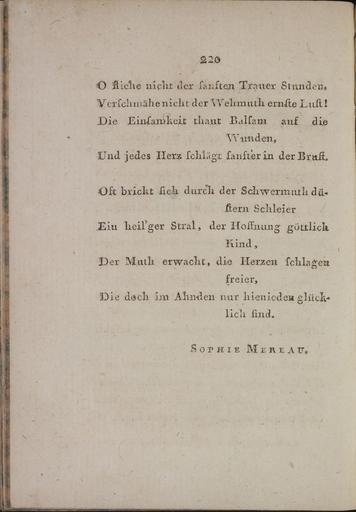 220
O fliehe nicht der ſanften Trauer Stunden,
Verſchmähe nicht der Wehmuth ernſte Luſt!
Die Einſamkeit thaut Balſam auf die
Wunden,
Und jedes Herz ſchlägt ſanfter in der Bruſt.
Oft bricht ſich durch der Schwermuth dü-
ſtern Schleier
Ein heil'ger Stral, der Hoffnung göttlich
Kind,
Der Muth erwacht, die Herzen ſchlagen
freier,
Die doch im Ahnden nur hienieden glück-
lich ſind.
SOPHIE MEREAU.